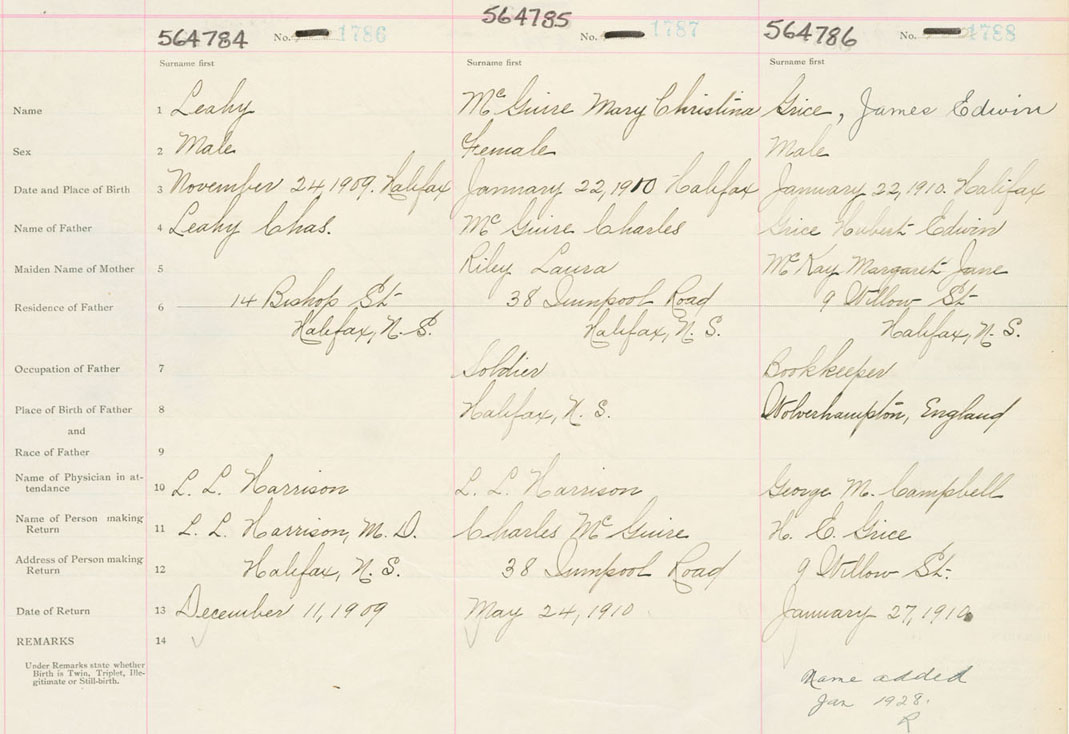 564784 No. 1786 564785 No. 1787 564786 No. 1788
Surname first Surname first Surname first
Name 1 Leahy McGuire Mary Christina Grice, James Edwin
Sex 2 Male Female Male
Date and Place of Birth 3 November 24, 1909. Halifax January 22, 1910 Halifax January 22, 1910. Halifax
Name of Father 4 Leahy Chas. McGuire Charles Grice Hubert Edwin
Maiden Name of Mother 5 Riley Laura McKay Margaret Jane
Residence of Father 6 14 Bishop St 38 Road 9 Willow St
Halifax, N. S. Halifax, N. S. Halifax, N. S.
Occupation of Father 7 Soldier Bookkeeper
Place of Birth of Father 8 Halifax, N. S. Wolverhampton, England
and
Race of Father 9
Name of Physician in at-
tendance 10 L. L. Harrison L. L. Harrison George M. Campbell
Name of Person making
Return 11 L. L. Harrison, M. D. Charles McGuire H. E. Grice
Address of Person making
Return 12 Halifax, N. S. 38 Road 9 Willow St.
Date of Return 13 December 11, 1909 May 24, 1910 January 27, 1910
REMARKS 14
Under Remarks state whether
Birth is Twin, Triplet, Ille-
gitimate or Still-birth.
Name added
Jan 1928.
R